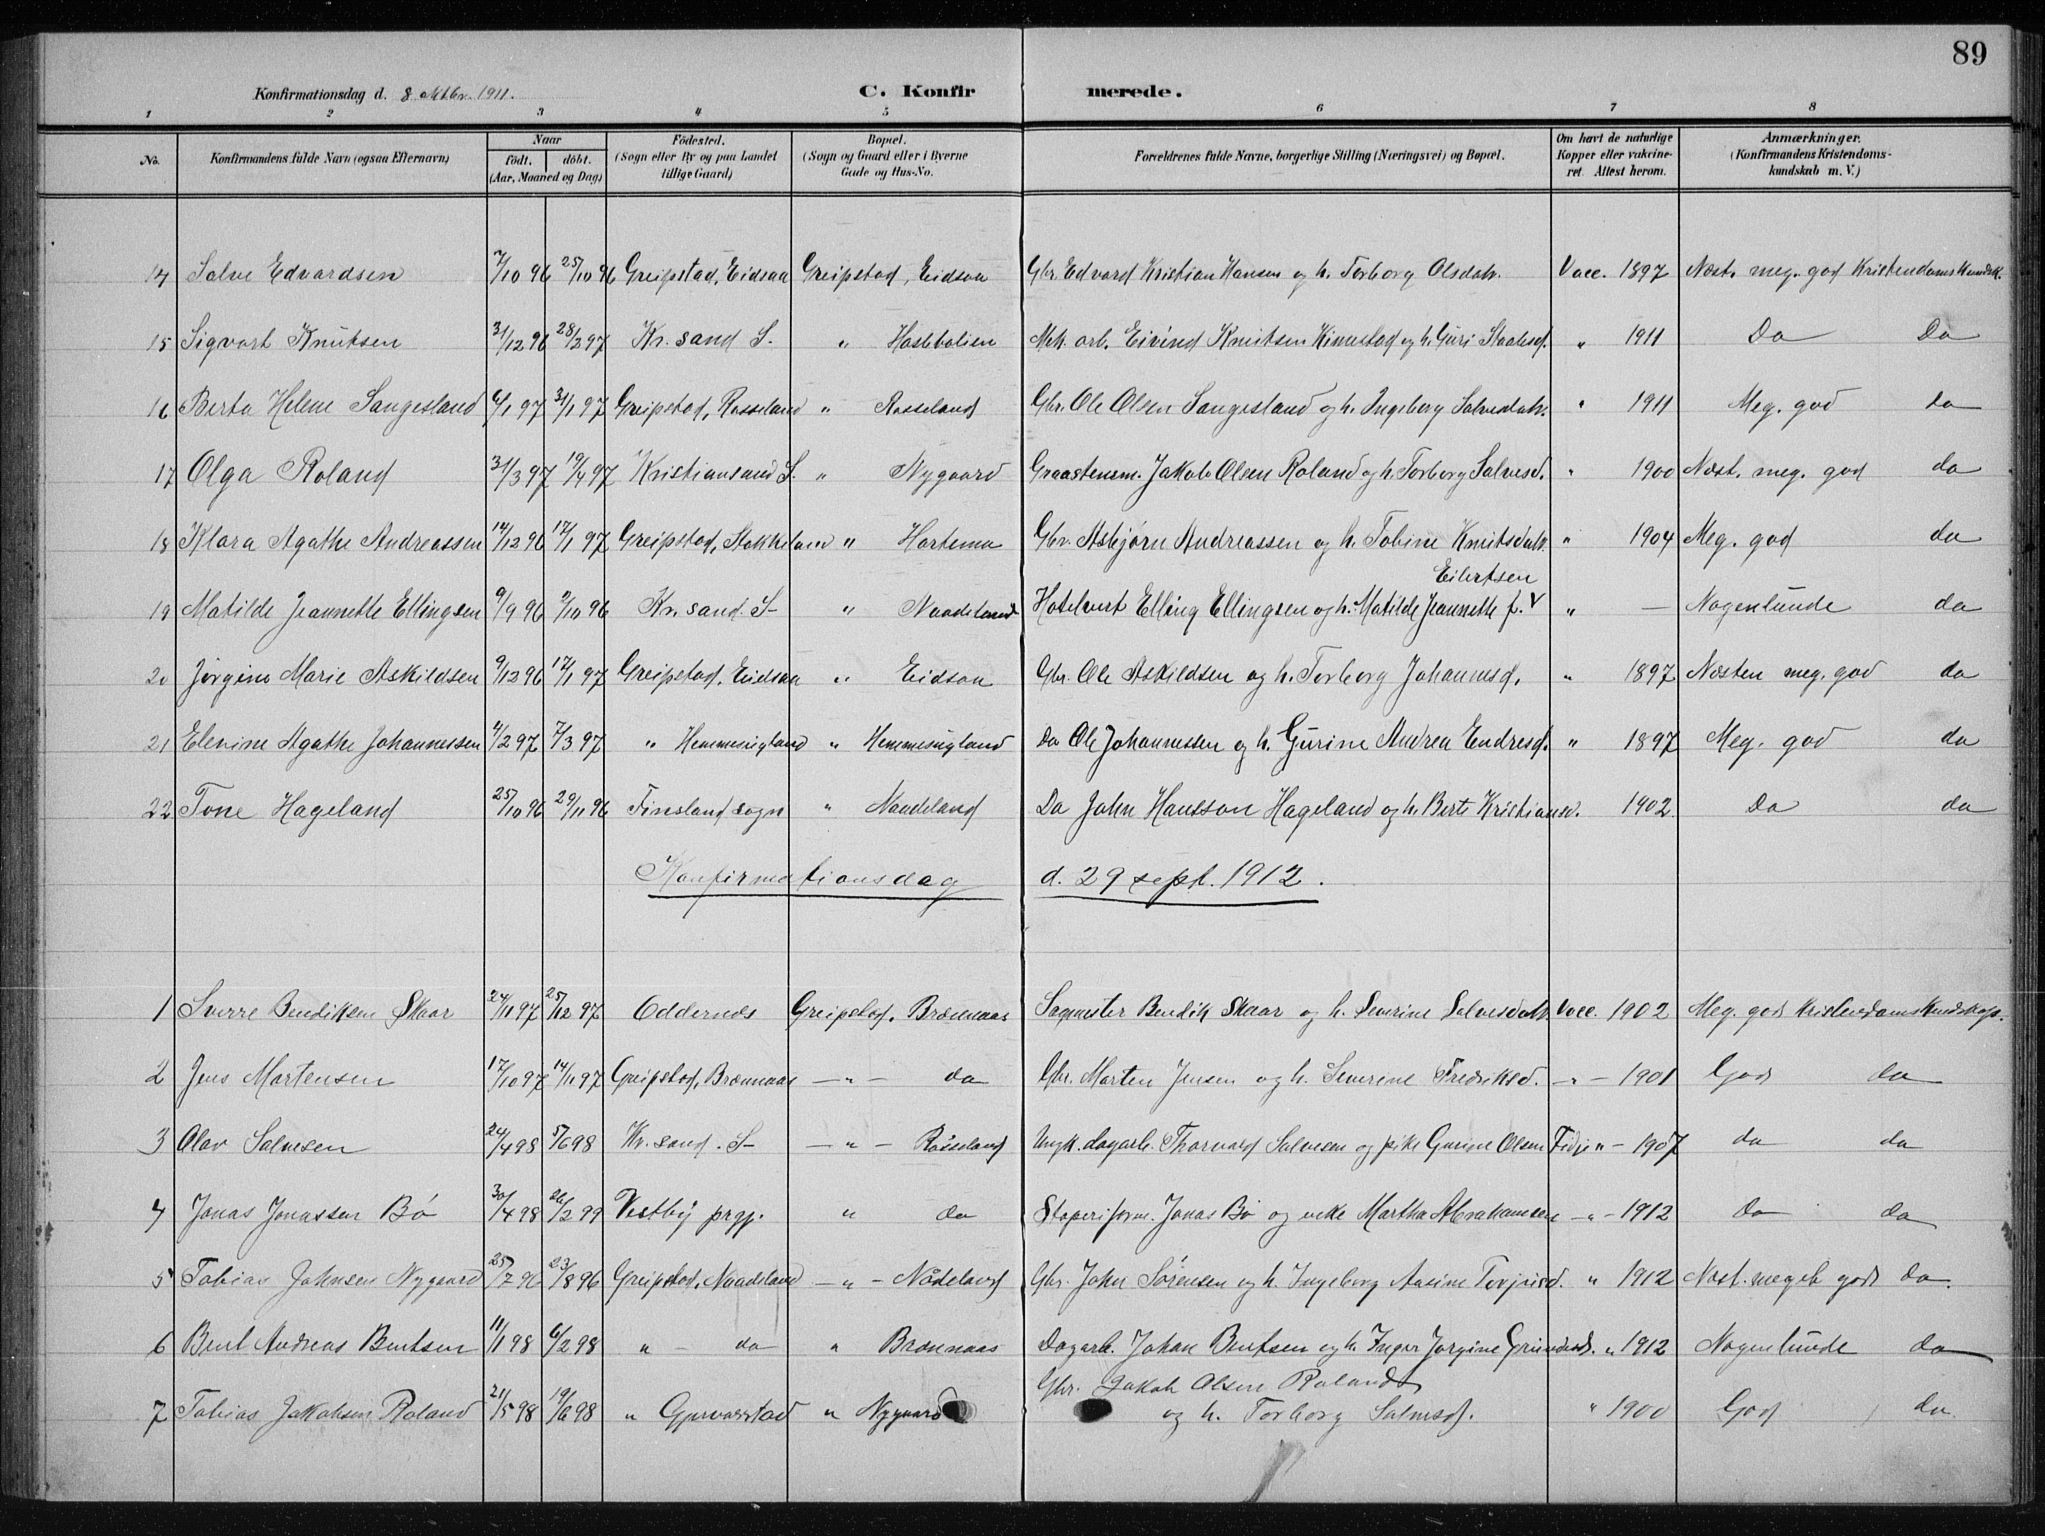 89
Konfirmationsdag d. 8 oktbr. 1911. C. Konfirmerede.
1 2 3 4 5 6 7 8
No. Konfirmandens fulde Navn (ogsaa Efternavn) Naar født. døbt. (Aar, Maaned og Dag) Fødested. (Sogn eller By og paa Landet tillige Gaard) Bopæl. (Sogn og Gaard eller i Byerne Gade og Hus-No. Forældrenes fulde Navne, borgerlige Stilling (Næringsvei) og Bopæl. Om havt de naturlige Kopper eller vakcineret. Attest herom. Anmærkninger. (Konfirmandens Kristendomskundskab m. V.)
14 Salve Edvardsen 7/10 96 25/10 96 Greipstad, Eidsaa Greipstad, Eidsaa Gbr. Edvard Kristian Hansen og h. Torborg Olsdatr. Vacc. 1897 Næst. meg. god Kristendomskundsk.
15 Sigvart Knutsen 31/12 96 28/2 97 Kr.sand S. " Mek. arb. Eivind Knutsen og h. Guri " 1911 Do Do
16 Berta Helene Sangesland 6/1 97 31/1 97 Greipstad, Rosseland " Rosseland Gbr. Ole Olsen Sangesland og h. Ingeborg Salvesdatr. " 1911 Meg. god do
17 Olga Roland 31/3 97 19/4 97 Kristiansand S. " Nygaard Graastensm. Jakob Olsen Roland og h. Torborg Salvesd. " 1900 Næst. meg. god do
18 Klara Agathe Andreassen 14/12 96 17/1 97 Greipstad, Stokkeland " Hortemo Gbr. Asbjørn Andreassen og h. Tobine Knutsdatr. " 1904 Meg. god do
19 Matilde Jeannette Ellingsen 9/9 96 Kr.sand. S " Naadeland Hotelvert Elling Ellingsen og h. Matilde Jeannette f. Eilertsen " — Nogenlunde do
20 Jørgine Marie Askildsen 9/12 96 17/1 97 Greipstad, Eidsaa " Eidsaa Gbr. Ole Askildsen og h. Torborg Johannesd. " 1897 Næsten meg. god do
21 Elevine Agathe Johannessen 4/2 97 7/3 97 " Hemmesigland " Hemmesigland Do Ole Johannessen og h. Gurine Andrea Endresd. " 1897 Meg. god do
22 Tone Hageland 25/10 96 29/11 96 Finsland sogn " Naadeland Do John Hansson Hageland og h. Berte Kristiansd. 1902 Do do
Konfirmationsdag d. 29 sept. 1912.
1 Sverre Bendiksen Skaar 24/11 97 25/12 97 Oddernes Greipstad, Brænnaas Sagmester Bendik Skaar og h. Severine Salvesdatr. Vacc. 1902 Meg. god Kristendomskundskap.
2 Jens Martensen 17/10 97 14/11 97 Greipstad, Brænnaas — " — do Gbr. Morten Jensen og h. Severine Fredriksd. — " — 1901 God do
3 Olav Salvesen 24/4 98 5/6 98 Kr.sand. S — " — Rosseland Ungk. dagarb. Thorvald Salvesen og pike Gurine Olsen Fidje " — 1907 do do
4 Jonas Jonassen Bø 30/4 98 26/2 99 Vestby prgj. " do Støperiform. Jonas Bø og enke Martha Abrahamsen — " — 1912 do do
5 Tobias Johnsen Nygaard 25/7 96 23/8 96 Greipstad, Naadeland — " — Nådeland Gbr. John Sørensen og h. Ingeborg Aasine Torjusd. " 1912 Næst. meget god do.
6 Bent Andreas Bentsen 11/1 98 6/2 98 " — do " Brænnaas Dagarb. Johan Bentsen og h. Inger Jørgine " 1912 Nogenlunde do
7 Tobias Jakobsen Roland 21/5 98 19/6 98 " " Nygaard Gbr. Jakob Olsen Roland
og h. Torborg Salvesd. " 1900 God do.